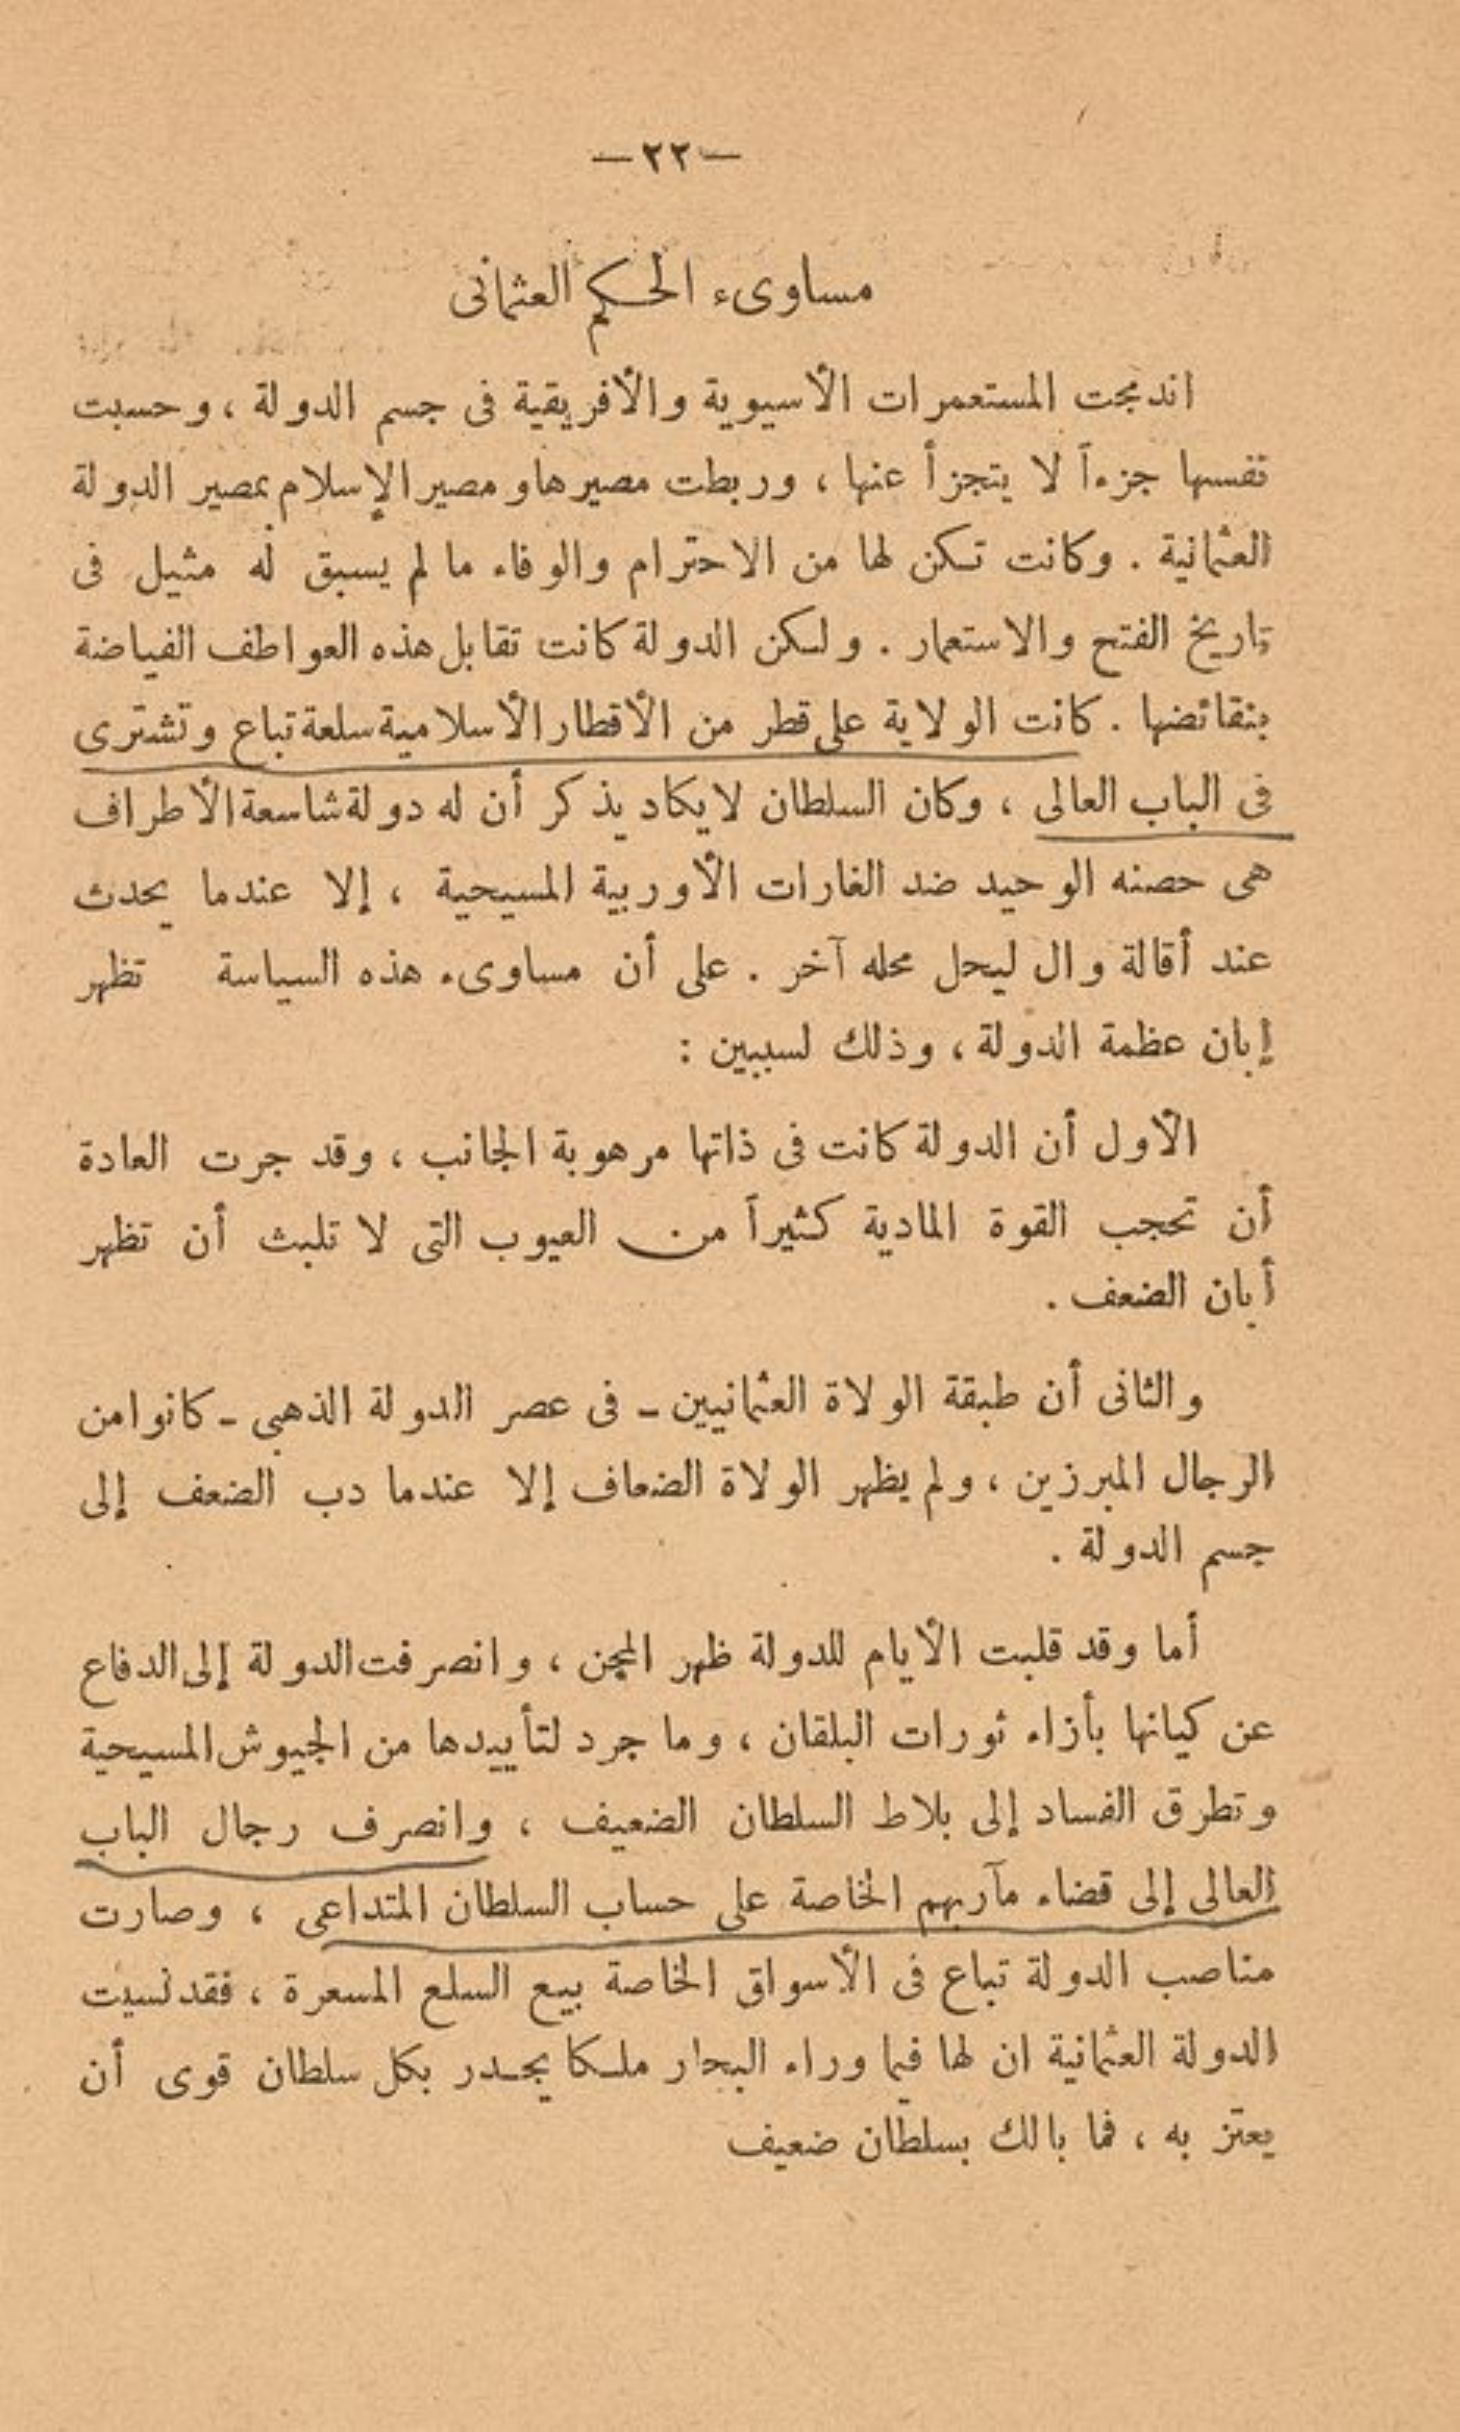 — ٢٢ —
مساوىء الحكم العثمانى
اندمجت المستعمرات الأسيوية والأفريقية فى جسم الدولة ، وحسبت
نفسها جزءاً لا يتجزأ عنها ، وربطت مصيرها ومصير الإسلام بمصير الدولة
العثمانية . وكانت تكن لها من الاحترام والوفاء ما لم يسبق له مثيل فى
تاريخ الفتح والاستعمار . ولكن الدولة كانت تقابل هذه العواطف الفياضة
بنقائضها . كانت الولاية على قطر من الأقطار الأسلامية سلعة تباع وتشترى
فى الباب العالى ، وكان السلطان لا يكاد يذكر أن له دولة شاسعة الأطراف
هى حصنه الوحيد ضد الغارات الأوربية المسيحية ، إلا عندما يحدث
عند أقالة وال ليحل محله آخر . على أن مساوىء هذه السياسة تظهر
إبان عظمة الدولة ، وذلك لسببين :
الأول أن الدولة كانت فى ذاتها مرهوبة الجانب ، وقد جرت العادة
أن تحجب القوة المادية كثيراً من العيوب التى لا تلبث أن تظهر
أبان الضعف .
والثانى أن طبقة الولاة العثمانيين - فى عصر الدولة الذهبى - كانوا من
الرجال المبرزين ، ولم يظهر الولاة الضعاف إلا عندما دب الضعف إلى
جسم الدولة .
أما وقد قلبت الأيام للدولة ظهر المجن ، وانصرفت الدولة إلى الدفاع
عن كيانها بأزاء ثورات البلقان ، وما جرد لتأييدها من الجيوش المسيحية
وتطرق الفساد إلى بلاط السلطان الضعيف ، وانصرف رجال الباب
العالى إلى قضاء مآربهم الخاصة على حساب السلطان المتداعى ، وصارت
مناصب الدولة تباع فى الأسواق الخاصة بيع السلع المسعرة ، فقد نسيت
الدولة العثمانية ان لها فيما وراء البحار ملكا يجدر بكل سلطان قوى أن
يعتز به ، فما بالك بسلطان ضعيف